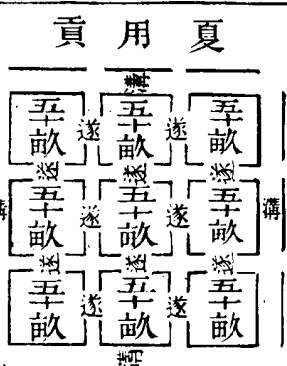 夏用貢
溝
五十畝 遂 五十畝 遂 五十畝
遂 遂 遂
溝 五十畝 遂 五十畝 遂 五十畝 溝
遂 遂 遂
五十畝 遂 五十畝 遂 五十畝
溝